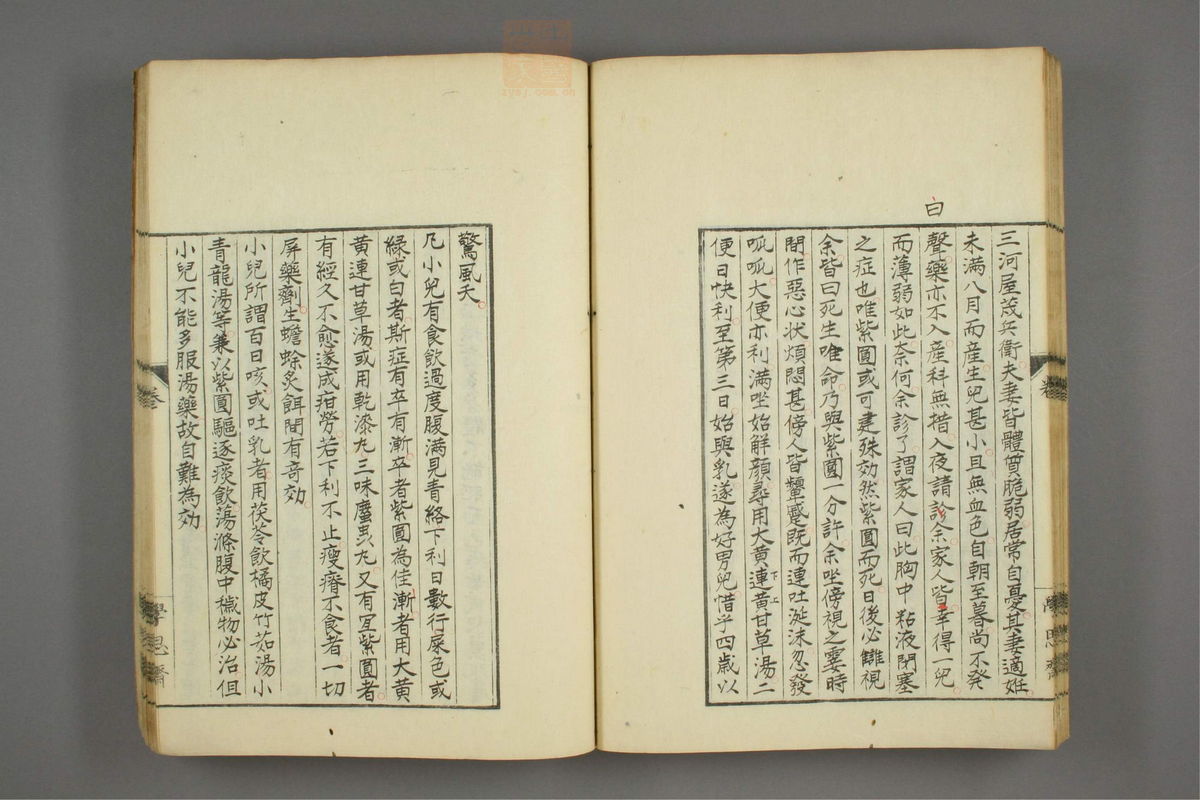 白
三河屋茂兵衛夫妻皆體質脆弱居常自憂其妻適姙
未満八月而産生兒甚小且無血色自朝至暮尚不発
聲藥亦不入産科無措入夜請診余家人皆幸得一兒
而薄弱如此奈何余診了謂家人曰此胸中粘液閉塞
之症也唯紫圓或可建殊効然紫圓而死日後必讎視
余皆曰死生唯命乃與紫圓一分許余坐傍視之霎時
間作惡心状煩悶甚傍人皆顰蹙既而連吐涎沫忽發
呱呱大便亦利満坐始解顔尋用大黄連黄甘草湯二
下上
便日快利至第三日始與乳遂為好男兒惜乎四歳以
驚風夭
凡小兒有食飲過度腹満見青絡下利日數行屎色或
緑或白者斯症有卒有漸卒者紫圓為佳漸者用大黄
黄連甘草湯或用乾漆丸三味䗪虫丸又有宜紫圓者
有經久不愈遂成疳勞若下利不止瘦瘠不食者一切
屏藥劑生蟾蜍炙餌間有奇効
小兒所謂百日咳或吐乳者用茯苓飲橘皮竹茹湯小
青龍湯等兼以紫圓驅逐痰飲蕩滌腹中穢物必治但
小兒不能多服湯藥故自難為効
巻
學思齋
學思齋
zysj.com.cn